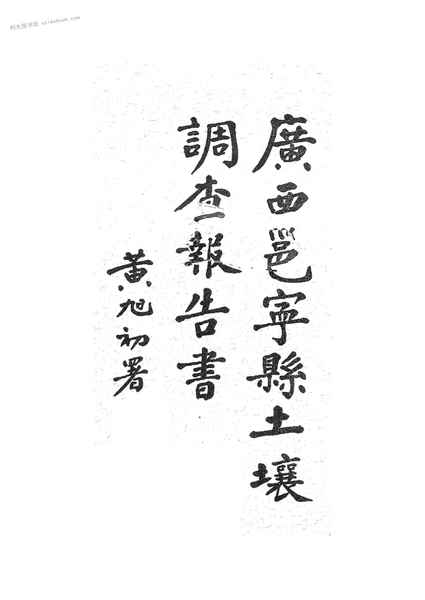 廣西邕寧縣土壤
調查報告書
黃旭初署